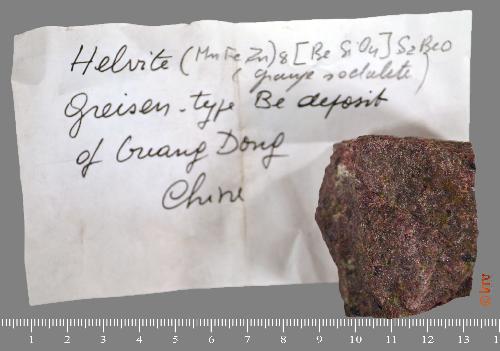 Helvite (Mn Fe Zn)8 [Be Si O4] S2 BeO
(groupe sodalite)
Greisen-type Be deposit
of Guang Dong
Chine
1 2 3 4 5 6 7 8 9 10 11 12 13